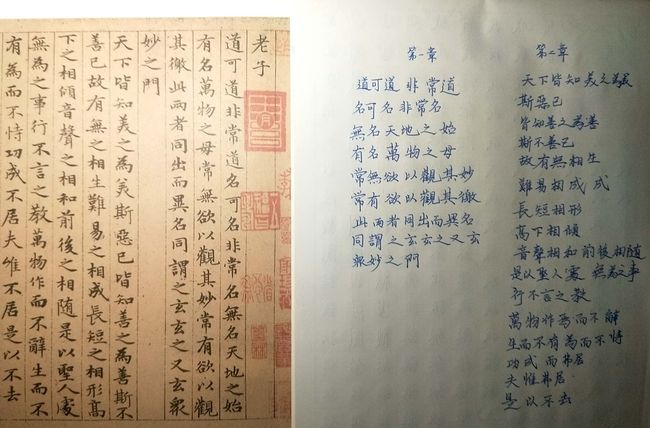 老子
道可道非常道名可名非常名無名天地之始
有名萬物之母常無欲以觀其妙常有欲以觀
其徼此兩者同出而異名同謂之玄玄之又玄衆
妙之門
天下皆知美之為美斯惡已皆知善之為善斯不
善已故有無之相生難易之相成長短之相形高
下之相傾音聲之相和前後之相隨是以聖人處
無為之事行不言之教萬物作而不辭生而不
有為而不恃功成不居夫惟不居是以不去
第一章
道可道 非常道
名可名 非常名
無名天地之始
有名萬物之母
常無欲以觀其妙
常有欲以觀其徼
此兩者同出而異名
同謂之玄玄之又玄
眾妙之門
第二章
天下皆知美之為美
斯惡已
皆知善之為善
斯不善已
故有無相生
難易相成 成
長短相形
高下相傾
音聲相和 前後相隨
是以聖人處 無為之事
行不言之教
萬物作焉而不辭
生而不有為而不恃
功成而弗居
夫惟弗居
是以不去